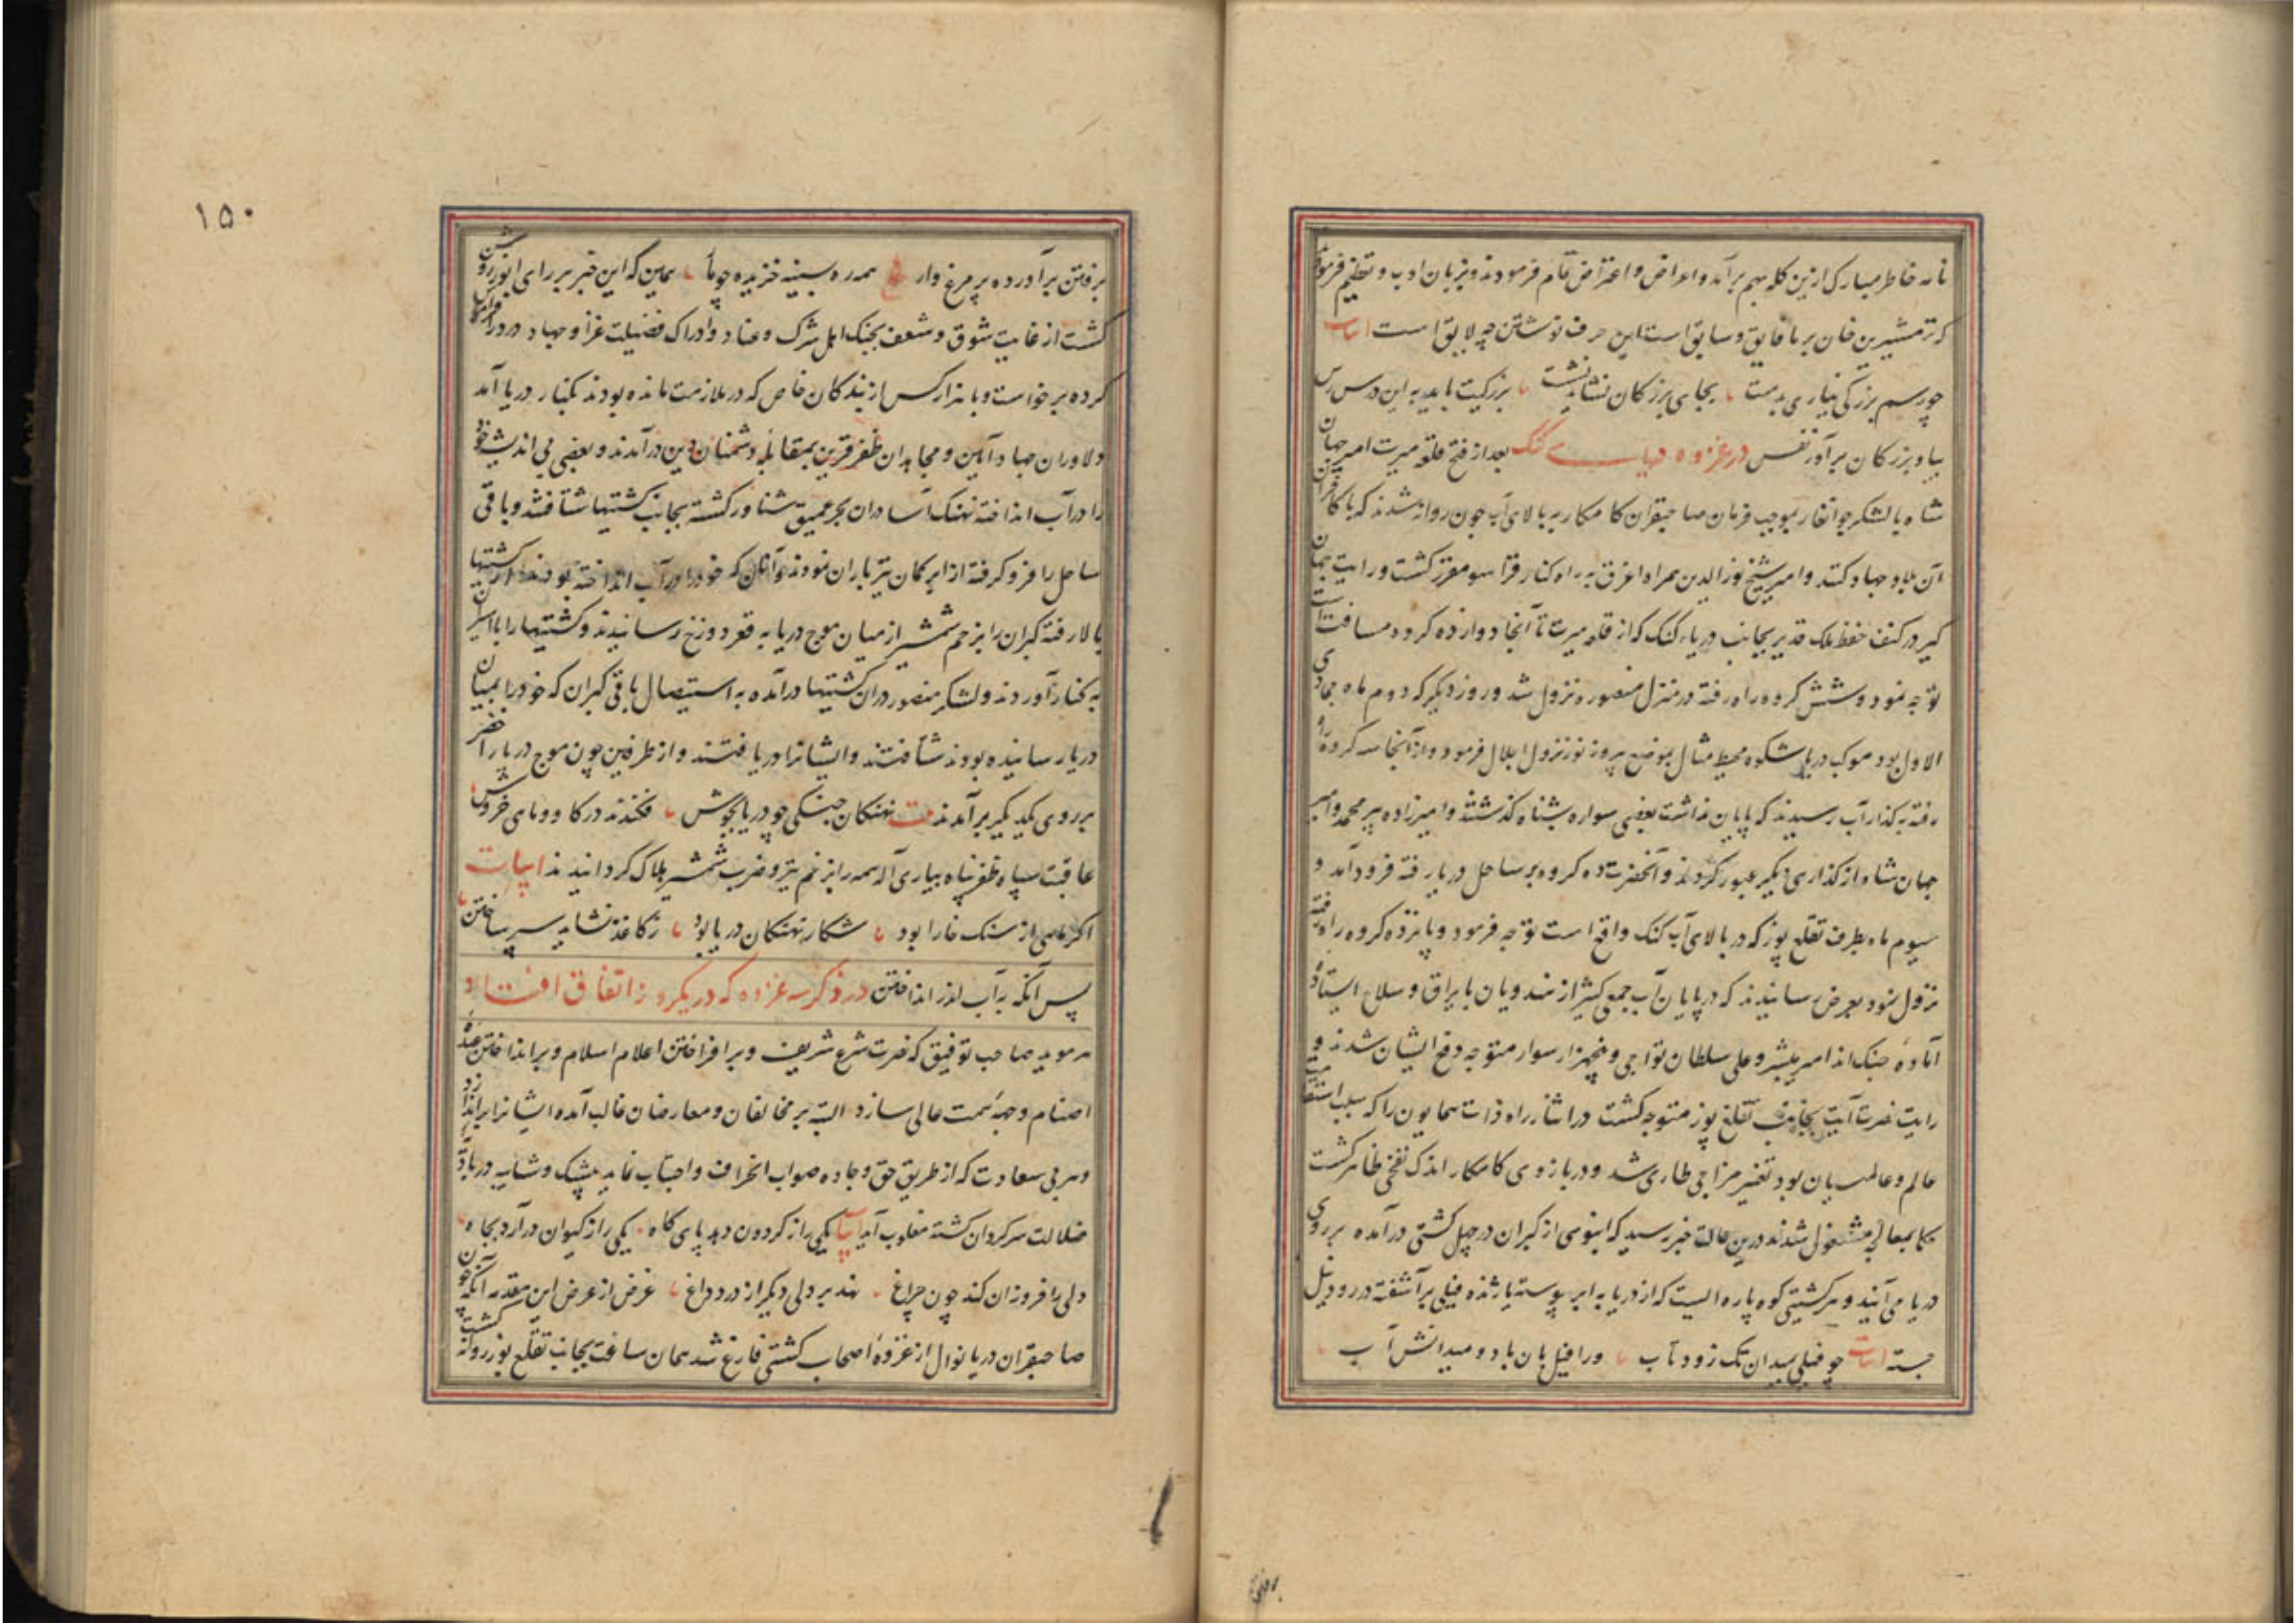 نامه خاطر مبارک ازین کلمه بهم برآمد و اعراض و اعتراض تمام فرمودند و بزبان ادب و تعظیم فرمود
که ترمشیرین خان بر ما فایق و سابق است این حرف نوشتن چه لایق است ابیات
چو رسم بزرگی نیاری بدست بجای بزرگان نشاید نشست بزرگیت باید به این درس رس
بیاد بزرگان برآور نفس در غزوه دریای گنگ بعد از فتح قلعه میرت امیر جهان
شاه با لشکر جوانغار بموجب فرمان صاحبقران کامکار به بالای آب جون روانه شدند که با کافران
آن بلاد جهاد کنند و امیر شیخ نورالدین همراه اغرق به راه کنار قراسو مقرر گشت و رایت جهان
گیر در کنف حفظ ملک قدیر بجانب دریاء گنگ که از قلعه میرت تا آنجا دوازده کروه مسافت است
توجه نمود و شش کروه راه رفته در منزل منصوره نزول شد و روز دیگر که دوم ماه جمادی
الاول بود موکب دریا شکوه محیط مثال بموضع پیروز نور نزول اجلال فرمود و از آنجا سه کروه راه
رفته به گذار آب رسیدند که پایان نداشت بعضی سواره بشناه گذشتند و امیرزاده پیر محمد و امیر
جهان شاه از گذاری دیگر عبور کردند و آنحضرت ده کروه بر ساحل دریا رفته فرود آمد و
سیوم ماه بطرف تغلع پور که در بالای آب گنگ واقع است توجه فرمود و پانزده کروه راه رفته
نزول نمود بعرض رسانیدند که در پایان آب جمعی کثیر از هندویان با یراق و سلاح ایستاده
آماده جنگ اند امیر مبشر و علی سلطان تواجی و پنجهزار سوار متوجه دفع ایشان شدند و
رایت نصرت آیت بجانب تغلغ پور متوجه گشت در اثناء راه ذات همایون را که سبب استقامت
عالم و عالمیان بود تغیر مزاجی طاری شد و در بازوی کامکار اندک نفخی ظاهر گشت
حکما بمعالجه مشغول شدند درین حالت خبر رسید که انبوهی از گبران در چهل کشتی درآمده بر روی
دریا می آیند و هر کشتیی کوه پاره ایست که از دریا به ابر پیوسته یا ژنده فیلی برآشفته در رود نیل
جسته ابیات چو فیلی بمیدان تک زود تاب ورا فیل بان باد و میدانش آب
برفتن
۱۵۰
برفتن برآورده پر مرغ وار همه ره بسینه خزیده چو مار همین که این خبر بر رای انور روشن
گشت از غایت شوق و شعف بجنگ اهل شرک و عناد و ادراک فضیلت غزا و جهاد درد را فراموش
کرده برخواست و با هزار کس از بندگان خاص که در ملازمت مانده بودند بکنار دریا آمد
دلاوران جهاد آیین و مجاهدان ظفر قرین بمقابله دشمنان دین درآمدند و بعضی بی اندیشه خود
را در آب انداخته نهنگ آسا در آن بحر عمیق شناور گشته بجانب کشتیها شتافتند و باقی
ساحل را فرو گرفته از ابر کمان تیر باران نمودند و آنان که خود را در آب انداخته بودند از کشتیها
بالا رفته گبران را بزخم شمشیر از میان موج دریا به قعر دوزخ رسانیدند و کشتیها را با اسیران
به کنار آوردند و لشکر منصور در آن کشتیها درآمده به استیصال باقی گبران که خود را بمیان
دریا رسانیده بودند شتافتند و ایشانرا دریافتند و از طرفین چون موج دریا را اخضر
بر روی یکدیگر برآمدند بیت نهنگان جنگی چو دریا بجوش فکندند در گاو و ماهی خروش
عاقبت سپاه ظفر پناه بیاری آله همه را بزخم تیر و ضرب شمشیر هلاک گردانیدند ابیات
اگر ماهی از سنگ خارا بود شکار نهنگان دریا بود ز کاغذ نشاید سپر ساختن
پس آنکه به آب اندر انداختن در ذکر سه غزوه که در یکروز اتفاق افتاد
هر موید صاحب توفیق که نصرت شرع شریف و برافراختن اعلام اسلام و برانداختن عبده
اصنام وجهه همت عالی سازد البته بر مخالفان و معارضان غالب آمده ایشانرا براندازد
و هر بی سعادت که از طریق حق و جاده صواب انحراف و اجتناب نماید بیشک و شایبه در بادیه
ضلالت سرگردان گشته مغلوب آید ابیات یکی را ز گردون دهد پای گاه یکی را ز کیوان درآرد بچاه
دلی را فروزان کند چون چراغ نهد بر دلی دیگر از درد داغ غرض از عرض این مقدمه آنکه چون
صاحبقران دریا نوال از غزوه اصحاب کشتی فارغ شد همان ساعت بجانب تغلع پور روانه گشت